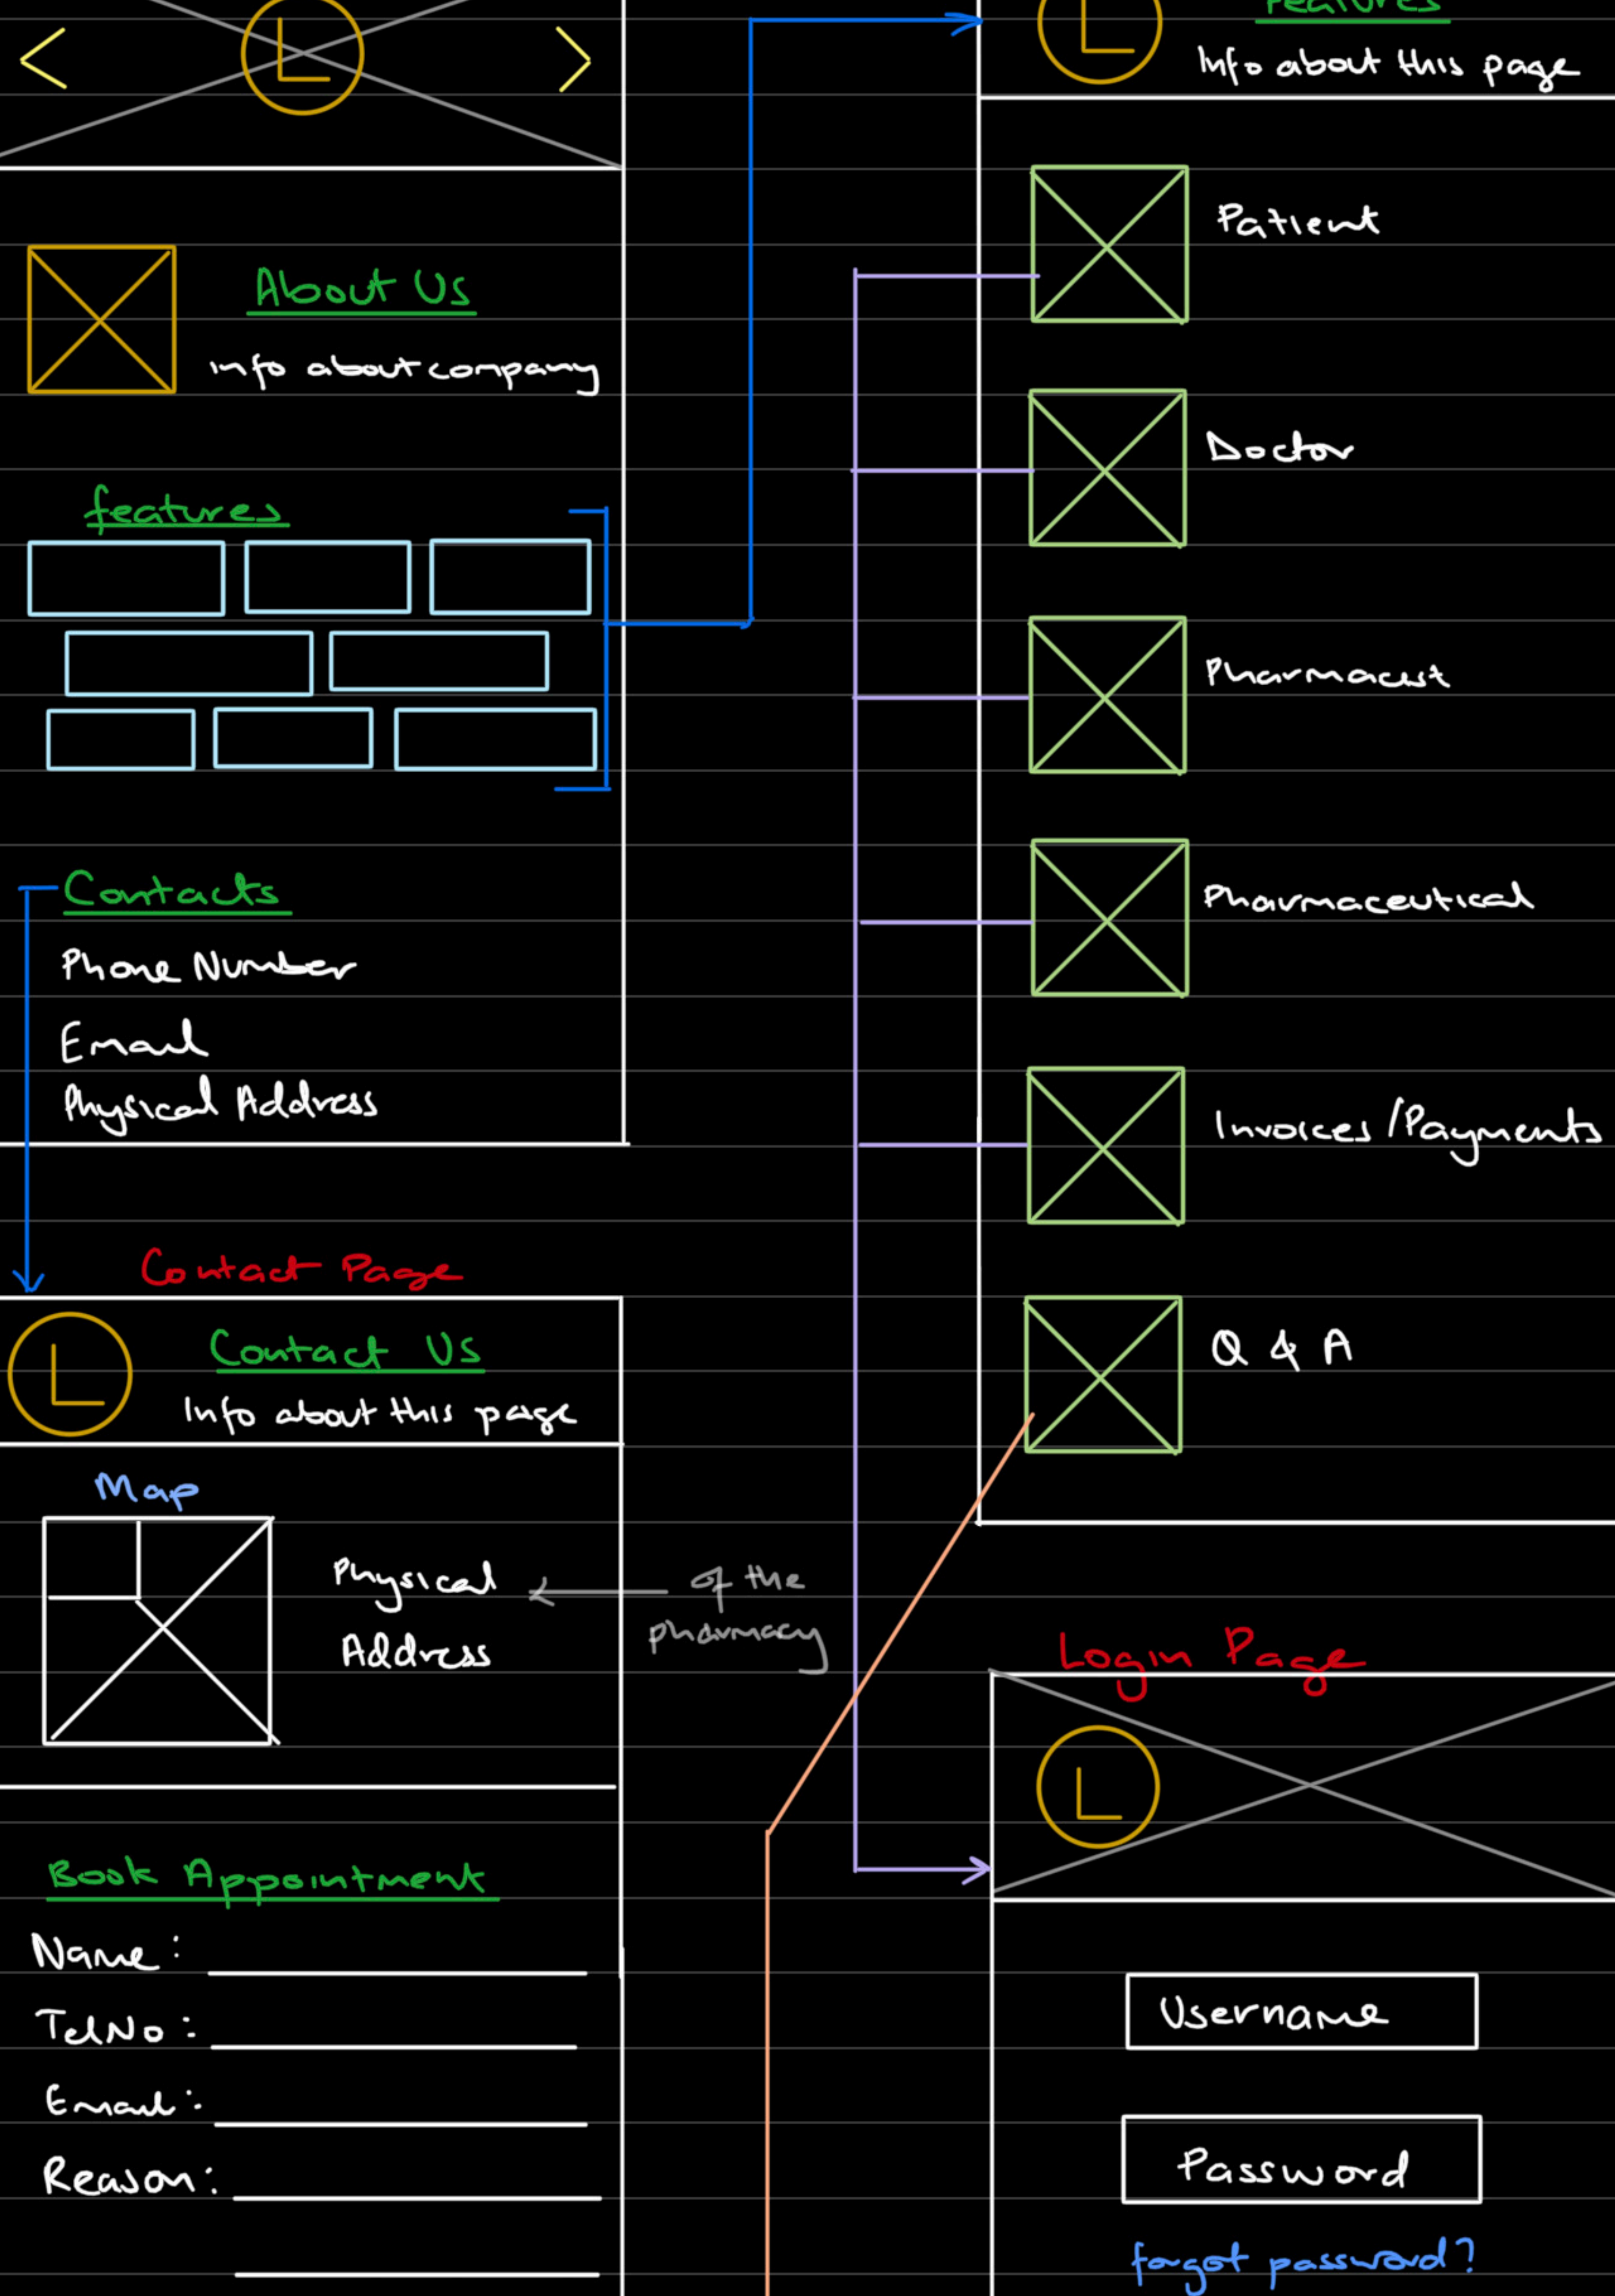 L
About Us
Info about company
features
Contacts
Phone Number
Email
Physical Address
Contact Page
L
Contact Us
Info about this page
Map
Physical
Address
of the
pharmacy
Book Appointment
Name:
TelNo:
Email:
Reason:
L
features
Info about this page
Patient
Doctor
Pharmacist
Pharmaceutical
Invoices/Payments
Q & A
Login Page
L
Username
Password
forgot password?